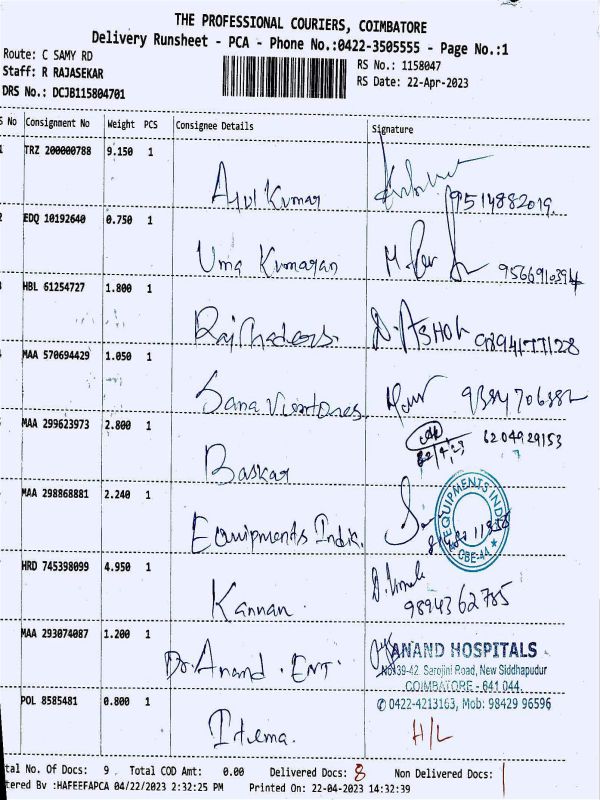 THE PROFESSIONAL COURIERS, COIMBATORE
Delivery Runsheet - PCA - Phone No.:0422-3505555 - Page No.:1
Route: C SAMY RD
RS No.: 1158047
Staff: R RAJASEKAR
RS Date: 22-Apr-2023
DRS No.: DCJB115804701
No Consignment No Weight PCS Consignee Details Signature
TRZ 200000788 9.150 1
Arul Kumar 9514882019
EDQ 10192640 0.750 1
Uma Kumaran
HBL 61254727 1.800 1
D. ASHOK 9894177128
MAA 570694429 1.050 1
Sana
MAA 299623973 2.800 1
6204929153
Baskar 22/4/23
MAA 298868881 2.240 1
EQUIPMENTS INDI
Equipments India
CBE-44
HRD 745398099 4.950 1
Kannan 9894362785
MAA 293074087 1.200 1
Dr. Anand. ENT.
ANAND HOSPITALS
No.39-42. Sarojini Road, New Siddhapudur
COIMBATORE - 641 044.
POL 8585481 0.800 1
✆ 0422-4213163, Mob: 98429 96596
H/L
tal No. Of Docs: 9 Total COD Amt: 0.00 Delivered Docs: 8 Non Delivered Docs: 1
tered By :HAFEEFAPCA 04/22/2023 2:32:25 PM Printed On: 22-04-2023 14:32:39